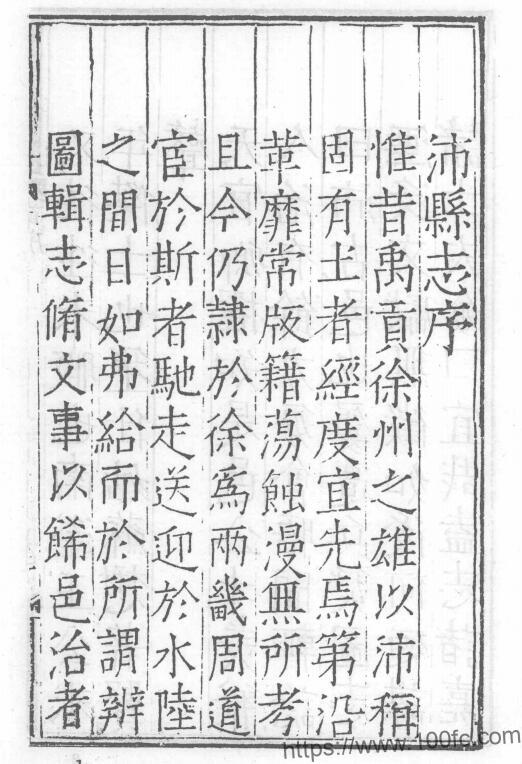 沛縣志序
惟昔禹貢徐州之雄以沛稱
固有土者經度宜先焉第沿
革靡常版籍蕩蝕漫無所考
且今仍隷於徐爲兩畿周道
宦於斯者馳走送迎於水陸
之間日如弗給而於所謂辨
圖輯志脩文事以餙邑治者
https://www.100fc.com